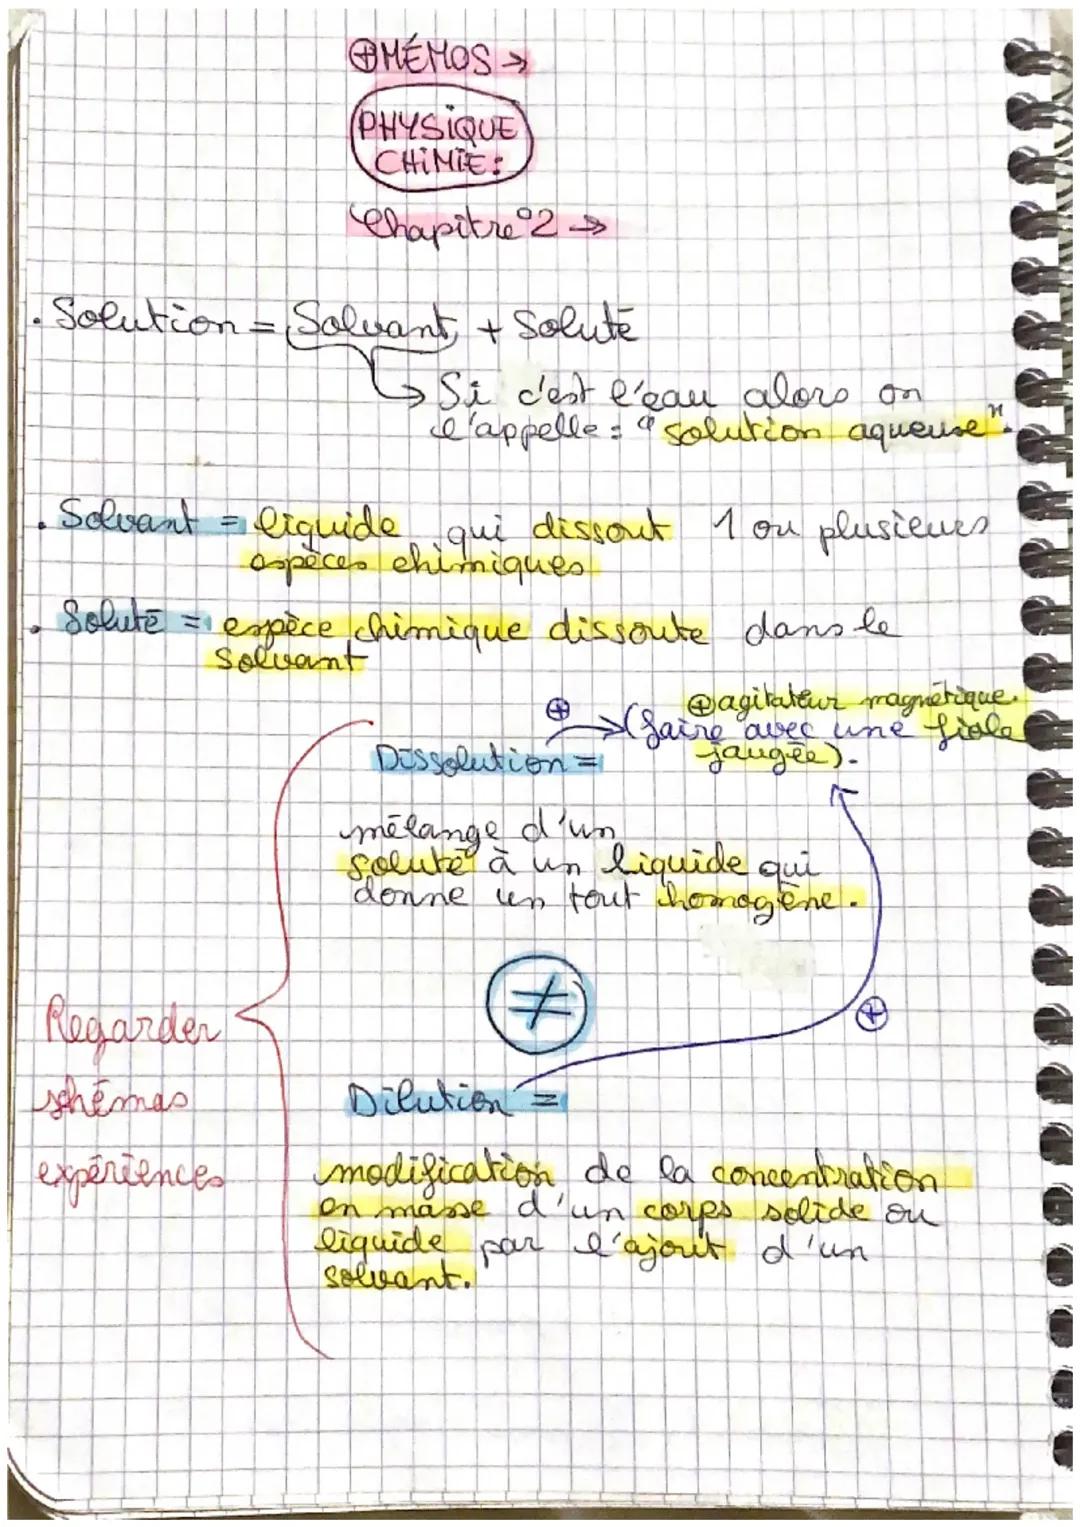 ⊕MÉMOS →
PHYSIQUE
CHIMIE:
Chapitre°2 →
. Solution = Solvant + Soluté
→ Si c'est l'eau alors on
l'appelle : "solution aqueuse".
. Solvant = liquide qui dissout 1 ou plusieurs
espèces chimiques
. Soluté = espèce chimique dissoute dans le
solvant
⊕ agitateur magnétique.
⊕ → (faire avec une fiole
jaugée).
Dissolution =
mélange d'un
soluté à un liquide qui
donne un tout homogène.
≠
⊕
Regarder
shémas
expériences
Dilution =
modification de la concentration
en masse d'un corps solide ou
liquide par l'ajout d'un
solvant.